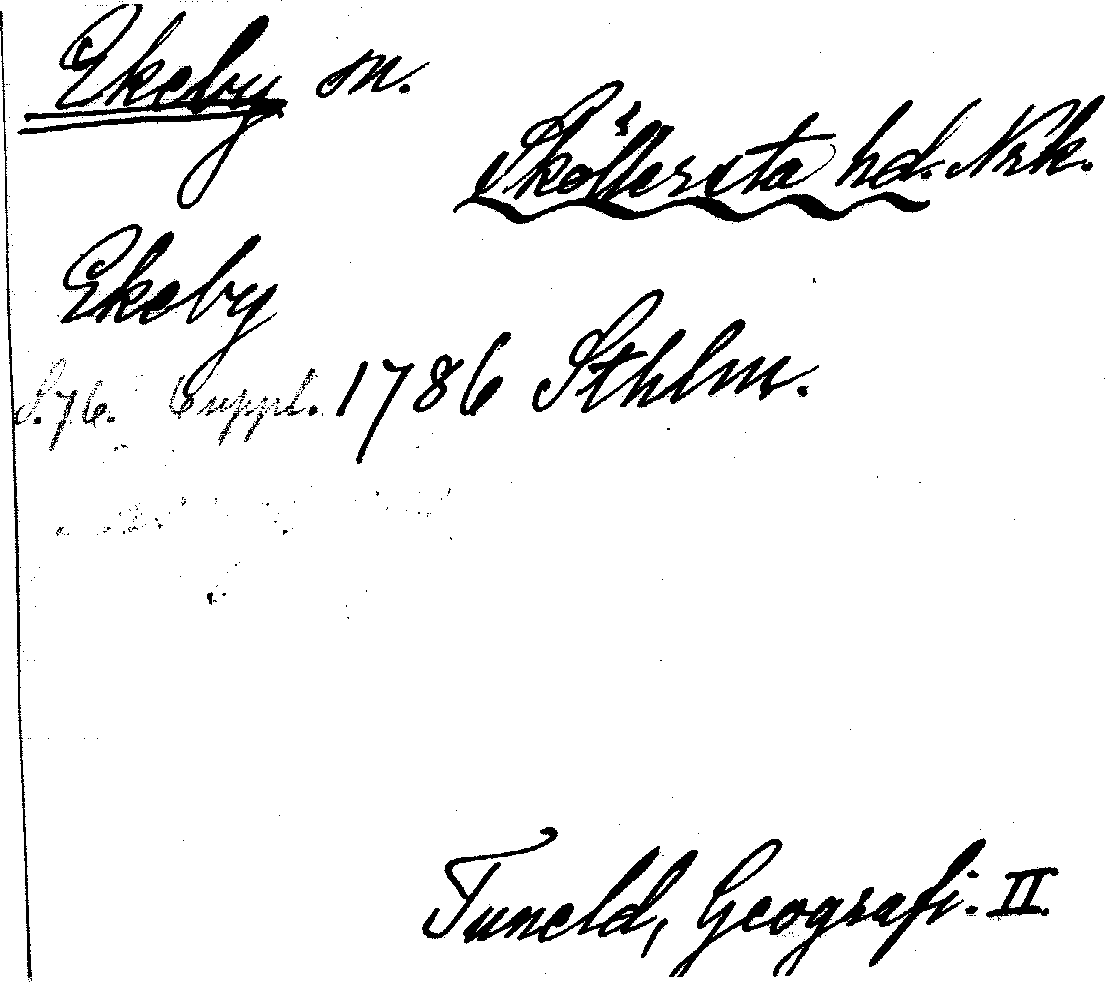 Ekeby sn.
Sköllersta hd. Nrk.
Ekeby
S. 76. Suppl. 1786 Sthlm.
Tuneld, Geografi. II.